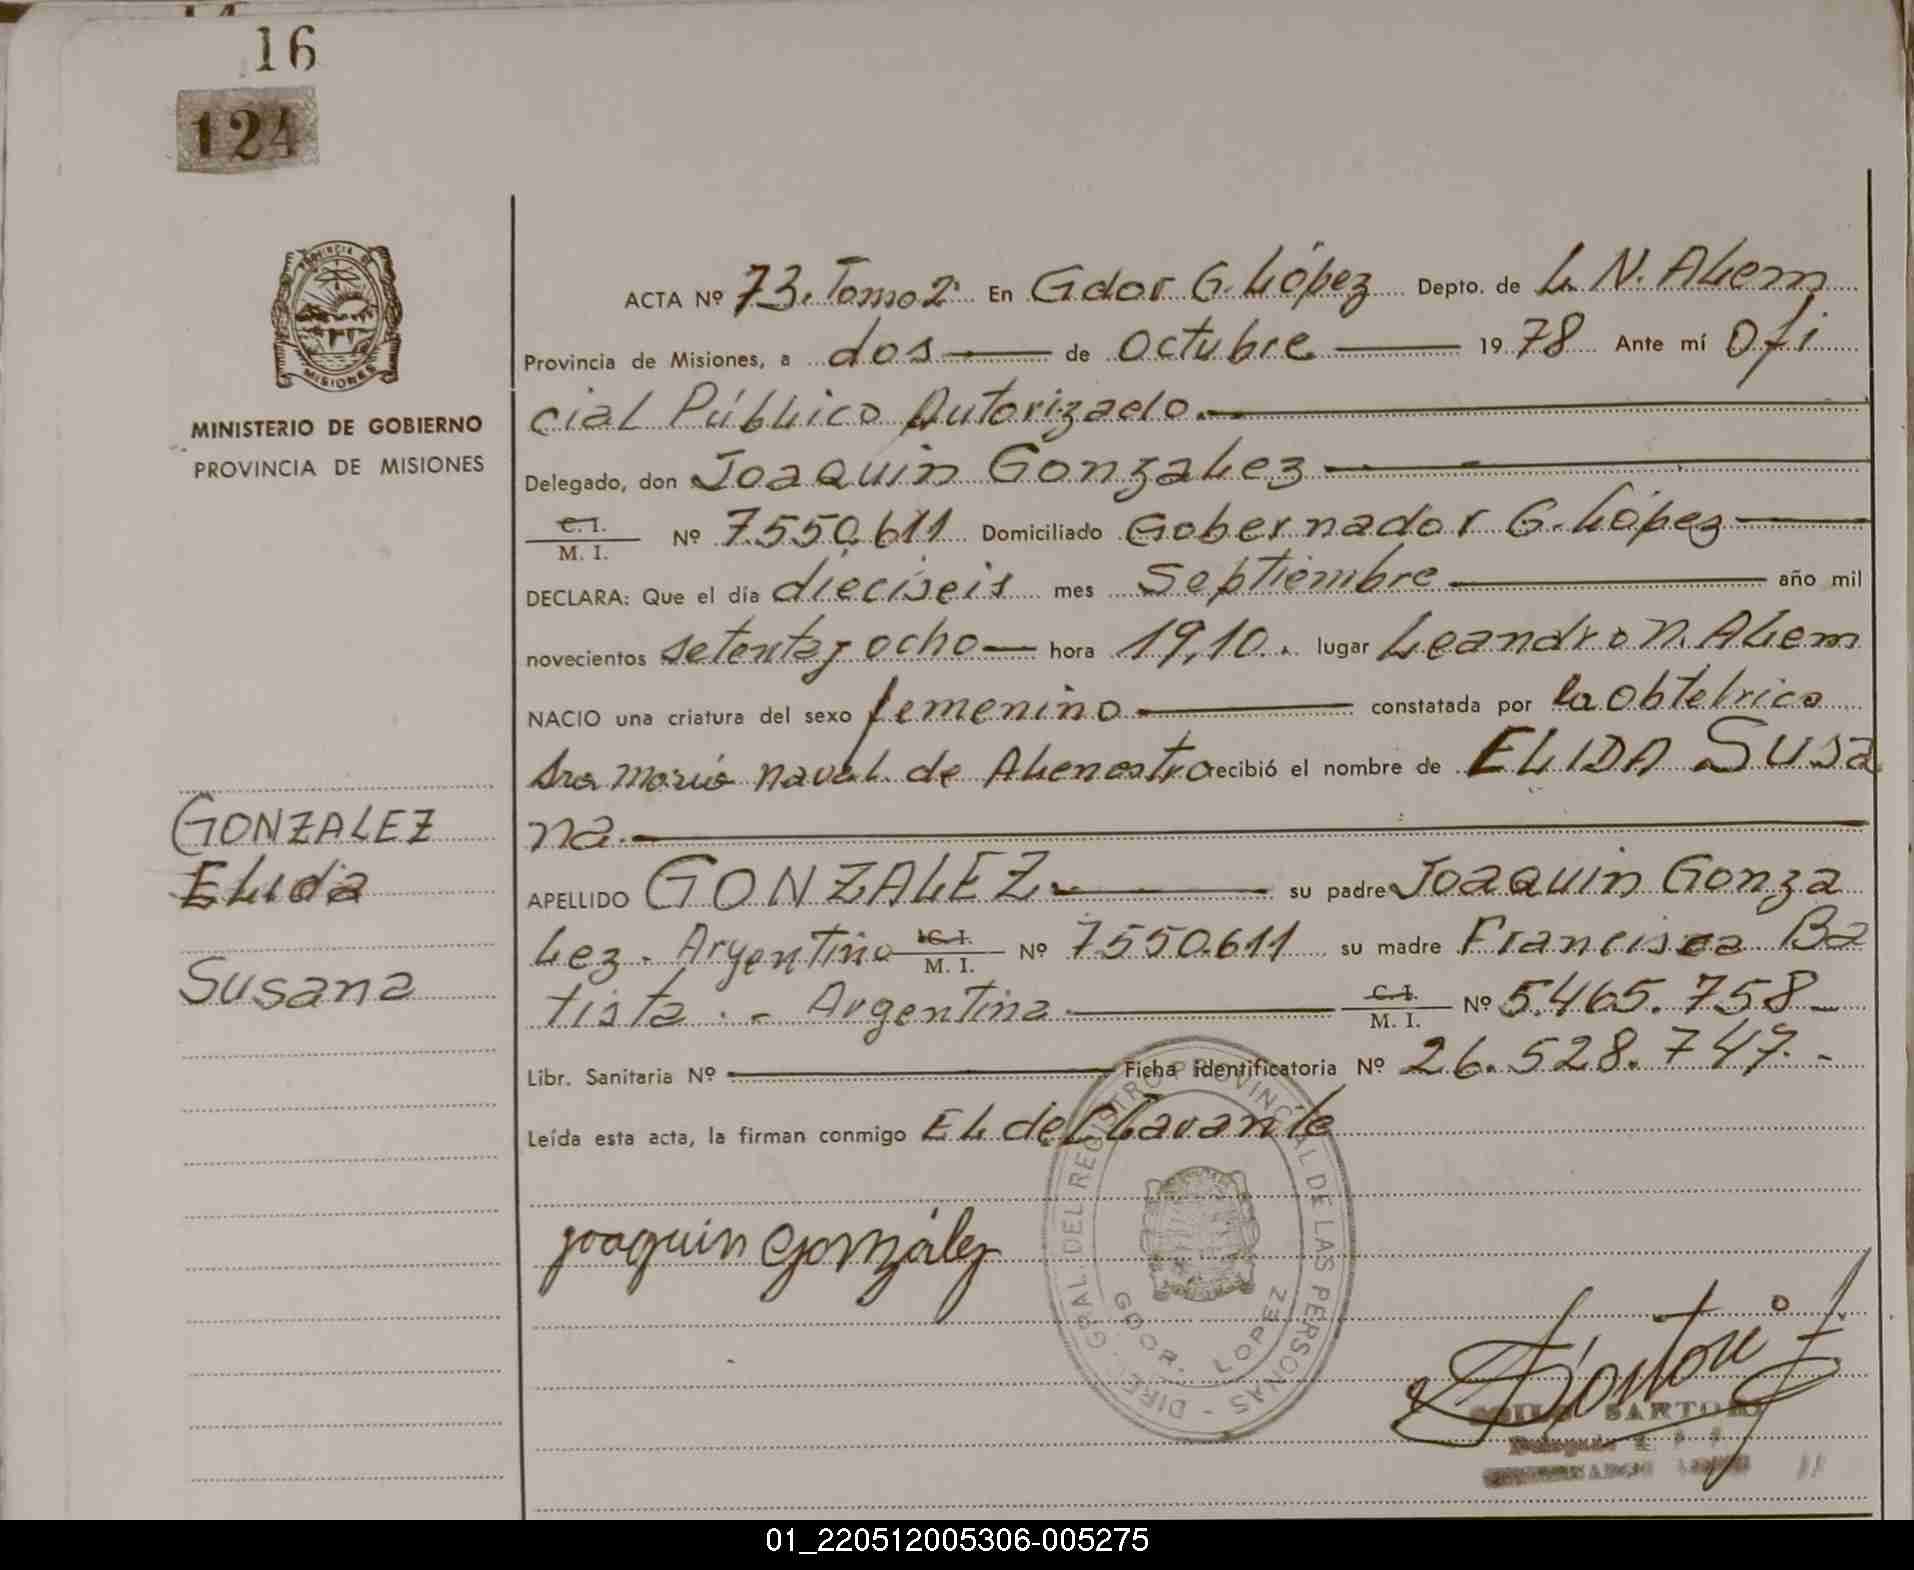 16
124
PROVINCIA DE
MISIONES
MINISTERIO DE GOBIERNO
PROVINCIA DE MISIONES
GONZALEZ
Elida
Susana
ACTA Nº 73. Tomo 2º En Gdor G. López Depto. de L. N. Alem
Provincia de Misiones, a dos de Octubre 1978 Ante mí Ofi
cial Público Autorizado.
Delegado, don Joaquin Gonzalez
C. I.
M. I. Nº 7.550.611 Domiciliado Gobernador G. López
DECLARA: Que el día dieciseis mes Septiembre año mil
novecientos setenta y ocho hora 19,10. lugar Leandro N. Alem
NACIO una criatura del sexo femenino constatada por la Obtetrica
Sra Maria Naval de recibió el nombre de ELIDA Susa
na.
APELLIDO GONZALEZ su padre Joaquin Gonza
lez. Argentino C. I. M. I. Nº 7550.611 su madre Francisca Ba
tista. - Argentina C. I. M. I. Nº 5.465.758
Libr. Sanitaria Nº Ficha Identificatoria Nº 26.528.747.-
Leída esta acta, la firman conmigo El declarante
Joaquin González
DIREC. GRAL. DEL REGISTRO PROVINCIAL DE LAS PERSONAS -
GDOR. LOPEZ
SARTORI
01_220512005306-005275